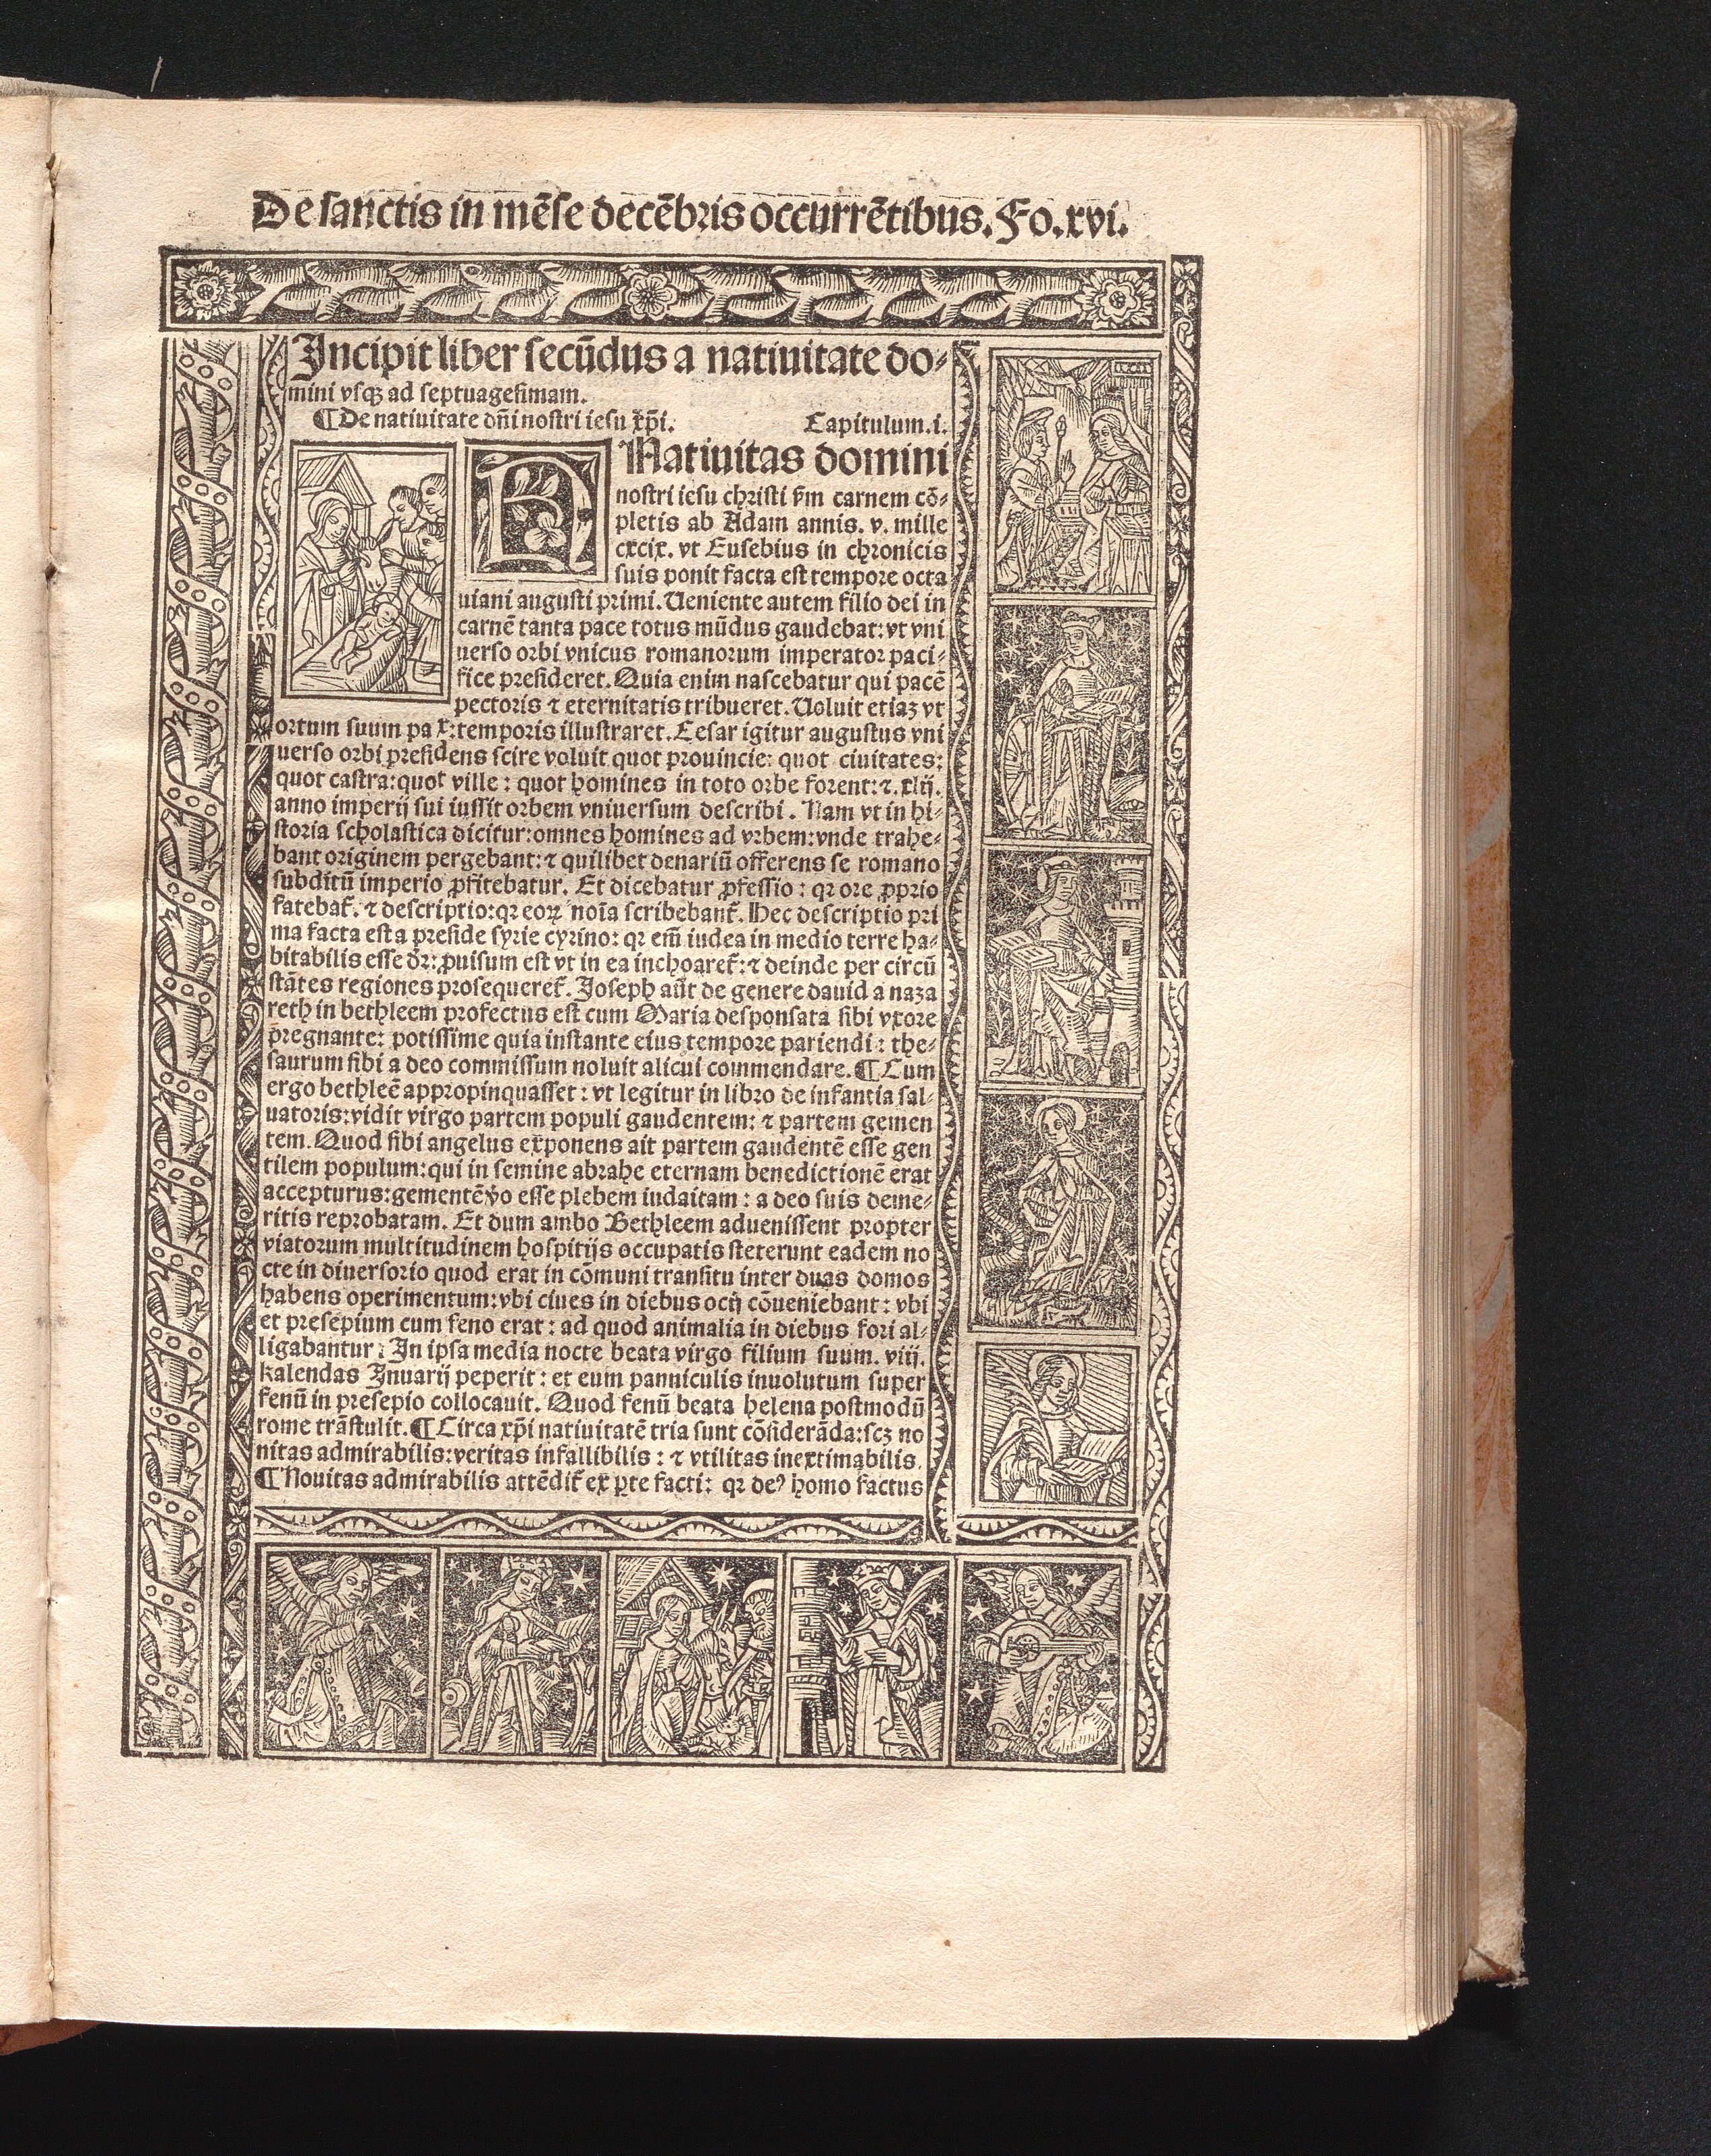 De sanctis in mēse decēbris occurrētibus. Fo. xvi.
Incipit liber secūdus a natiuitate do-
mini vsqꝫ ad septuagesimam.
¶ De natiuitate dñi nostri iesu xp̄i. Capitulum. i.
Natiuitas domini
nostri iesu christi ẜm carnem cō-
pletis ab Adam annis. v. mille
cxcix. vt Eusebius in chronicis
suis ponit facta est tempore octa
uiani augusti primi. Ueniente autem filio dei in
carnē tanta pace totus mūdus gaudebat: vt vni
uerso orbi vnicus romanorum imperator paci-
fice presideret. Quia enim nascebatur qui pacē
pectoris ⁊ eternitatis tribueret. Uoluit etiaz vt
ortum suum pa x: temporis illustraret. Cesar igitur augustus vni
uerso orbi presidens scire voluit quot prouincie: quot ciuitates:
quot castra: quot ville: quot homines in toto orbe forent: ⁊. xlij.
anno imperij sui iussit orbem vniuersum describi. Nam vt in hi-
storia scholastica dicitur: omnes homines ad vrbem: vnde trahe-
bant originem pergebant: ⁊ quilibet denariū offerens se romano
subditū imperio ꝓfitebatur. Et dicebatur ꝓfessio: qꝛ ore ꝓprio
fatebat̄. ⁊ descriptio: qꝛ eoꝝ noīa scribebant̄. Hec descriptio pri
ma facta est a preside syrie cyrino: qꝛ em̄ iudea in medio terre ha-
bitabilis esse dꝛ̄: ꝓuisum est vt in ea inchoaret̄: ⁊ deinde per circū
stātes regiones prosequeret̄. Joseph aūt de genere dauid a naza
reth in bethleem profectus est cum Maria desponsata sibi vxore
pregnante: potissime quia instante eius tempore pariendi: the-
saurum sibi a deo commissum noluit alicui commendare. ¶ Cum
ergo bethleē appropinquasset: vt legitur in libro de infantia sal-
uatoris: vidit virgo partem populi gaudentem: ⁊ partem gemen
tem. Quod sibi angelus exponens ait partem gaudentē esse gen
tilem populum: qui in semine abrahe eternam benedictionē erat
accepturus: gementē v̄o esse plebem iudaitam: a deo suis deme-
ritis reprobatam. Et dum ambo Bethleem aduenissent propter
viatorum multitudinem hospitijs occupatis steterunt eadem no
cte in diuersorio quod erat in cōmuni transitu inter duas domos
habens operimentum: vbi ciues in diebus ocij cōueniebant: vbi
et presepium cum feno erat: ad quod animalia in diebus fori al-
ligabantur: In ipsa media nocte beata virgo filium suum. viij.
kalendas Jnuarij peperit: et eum panniculis inuolutum super
fenū in presepio collocauit. Quod fenū beata helena postmodū
rome trāstulit. ¶ Circa xp̄i natiuitatē tria sunt cōsiderāda: scꝫ no
uitas admirabilis: veritas infallibilis: ⁊ vtilitas inextimabilis.
¶ Nouitas admirabilis attēdit̄ ex ꝑte facti: qꝛ deꝰ homo factus